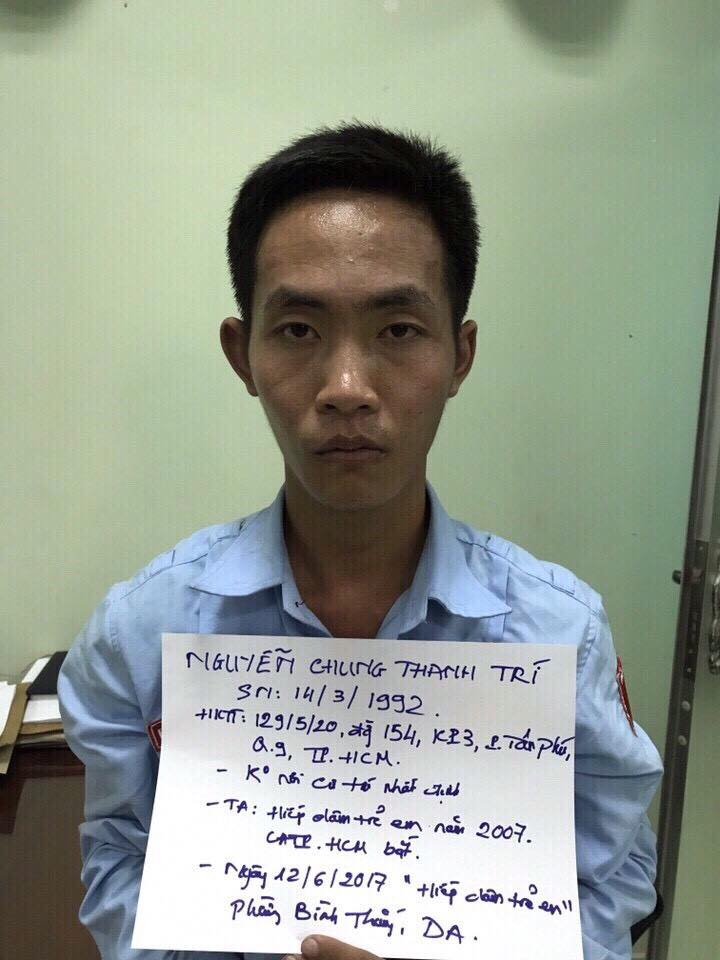 NGUYỄN CHUNG THANH TRÍ
SN: 14/3/1992.
HKTT: 129/5/20, 154, KP3, P. Tân Phú,
Q.9, TP. HCM.
- K° nơi cư trú nhất định
- TA: Hiếp dâm trẻ em năm 2007.
CATP. HCM bắt.
- Ngày 12/6/2017 "Hiếp dâm trẻ em"
Bình, DA.